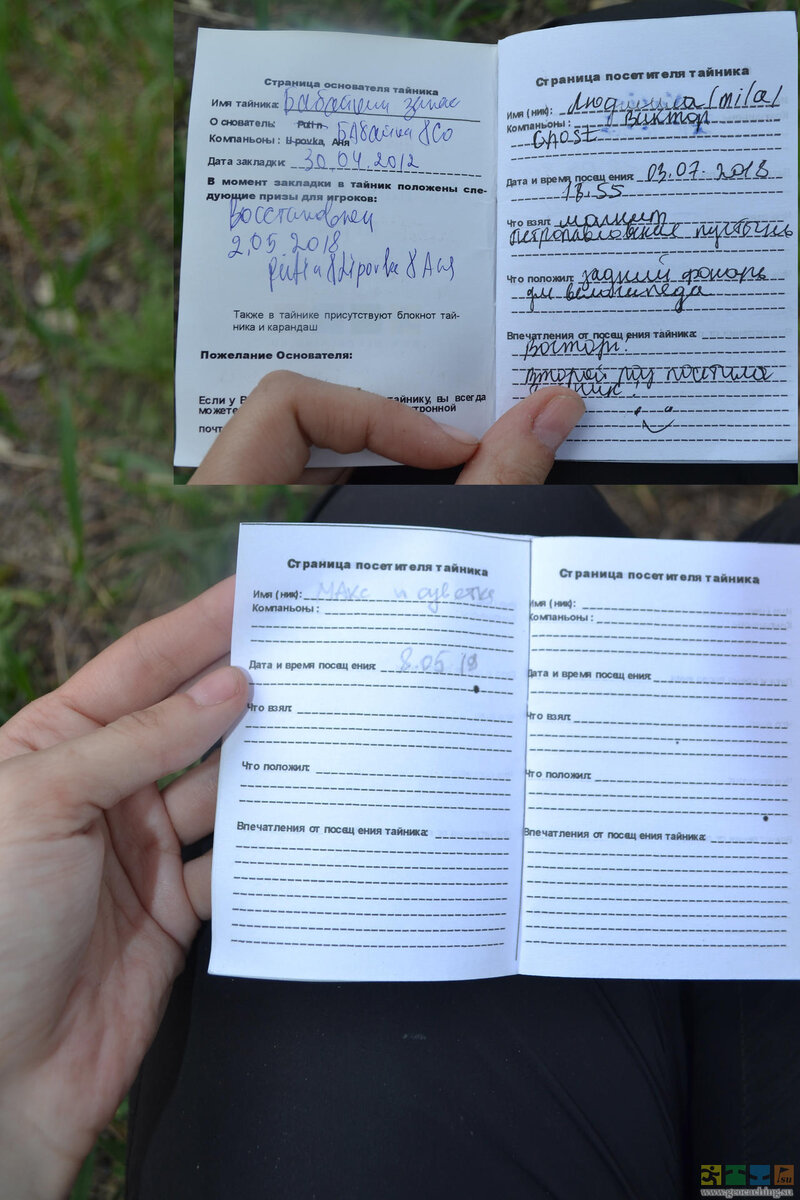 Страница основателя тайника
Имя тайника: Бабайкин запас
Основатель: Putnik БАбайка &Co
Компаньоны: Lipovka, Аня
Дата закладки: 30.04.2012
В момент закладки в тайник положены сле-
дующие призы для игроков:
Восстановлен
2.05 2018
&Lipovka & Аня
Также в тайнике присутствуют блокнот тай-
ника и карандаш
Пожелание Основателя:
Если у В тайнику, вы всегда
можете тронной
почт
Страница посетителя тайника
Имя (ник): Людмила /mila/
Компаньоны: Виктор
GHOST
Дата и время посещения: 03.07.2018
18.55
Что взял: магнит
Петропавловская пустынь
Что положил: задний фонарь
для велосипеда
Впечатления от посещения тайника:
Восторг!
второй раз посетила
тайник!
Страница посетителя тайника
Имя (ник): МАкс и светка
Компаньоны:
Дата и время посещения: 8.05 19
Что взял:
Что положил:
Впечатления от посещения тайника:
Страница посетителя тайника
Имя (ник):
Компаньоны:
Дата и время посещения:
Что взял:
Что положил:
Впечатления от посещения тайника:
www.geocaching.su